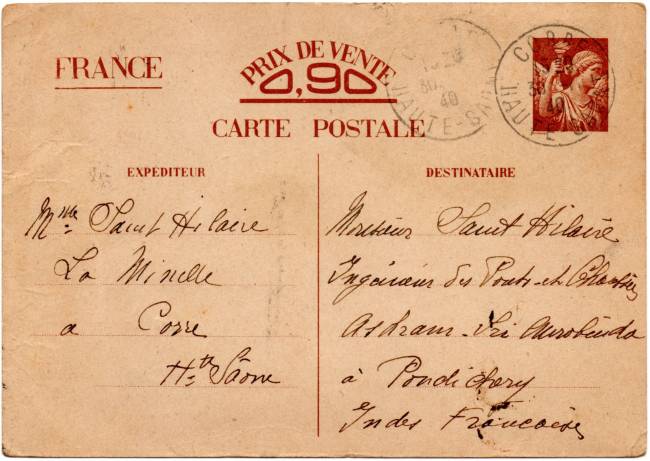 FRANCE
PRIX DE VENTE
0,90
CARTE POSTALE
CORRE
30
40
HAUTE-SAÔNE
CORRE
30
40
HAUTE-SAÔNE
EXPÉDITEUR
Mlle Saint Hilaire
La Minelle
a Corre
Hte Saône
DESTINATAIRE
Monsieur Saint Hilaire
Ingénieur des Ponts-et Chaussées
Ashram Sri Aurobindo
à Pondichery
Indes Françaises